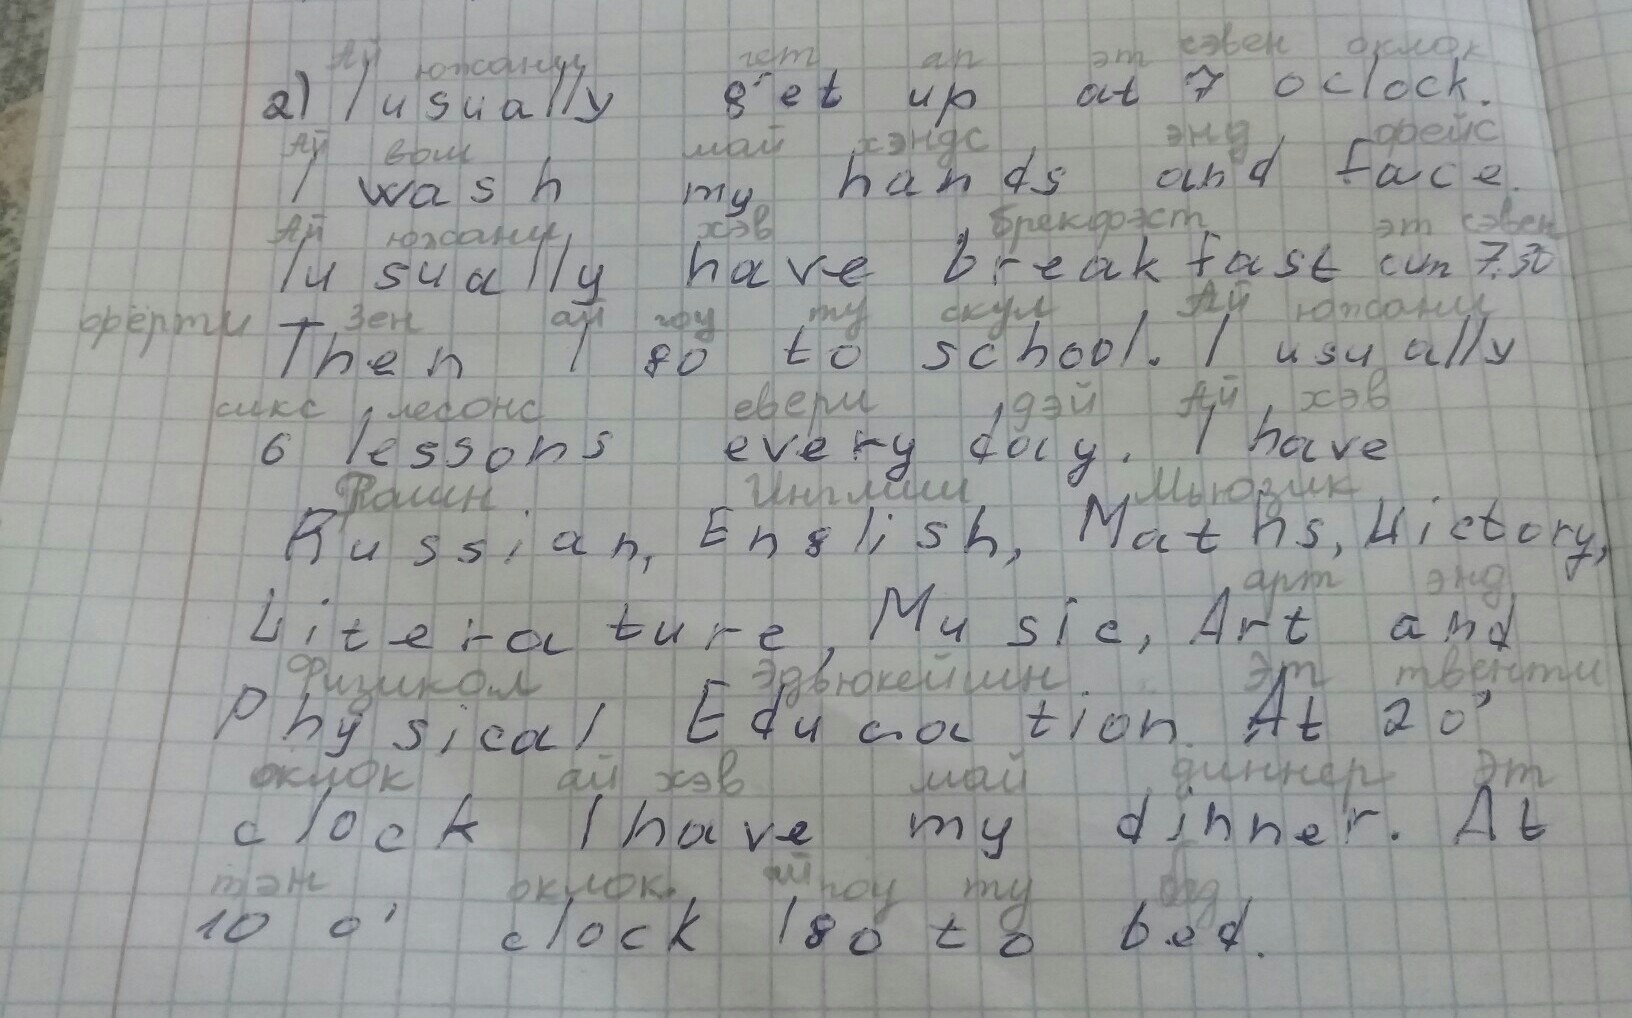 Ай южанли гет ап эт сэвен оклок
2) I usually get up at 7 oclock.
Ай вош май хэндс энд фейс
I wash my hands and face.
Ай южанли хэв брекфэст эт сэвен
I usually have breakfast am 7.30
фёрти Зен ай гоу ту скул Ай южанли
Then I go to school. I usually
сикс лесонс евери дэй Ай хэв
6 lessons every day. I have
Рашин Инглиш Мьюзик
Russian, English, Maths, Hictory,
арт энд
Literature, Music, Art and
Физикол Эдьюкейшин Эт твенти
Physical Education. At 20'
оклок ай хэв май диннер Эт
clock I have my dinner. At
тэн оклок ай гоу ту бэд
10 o' clock I go to bed.